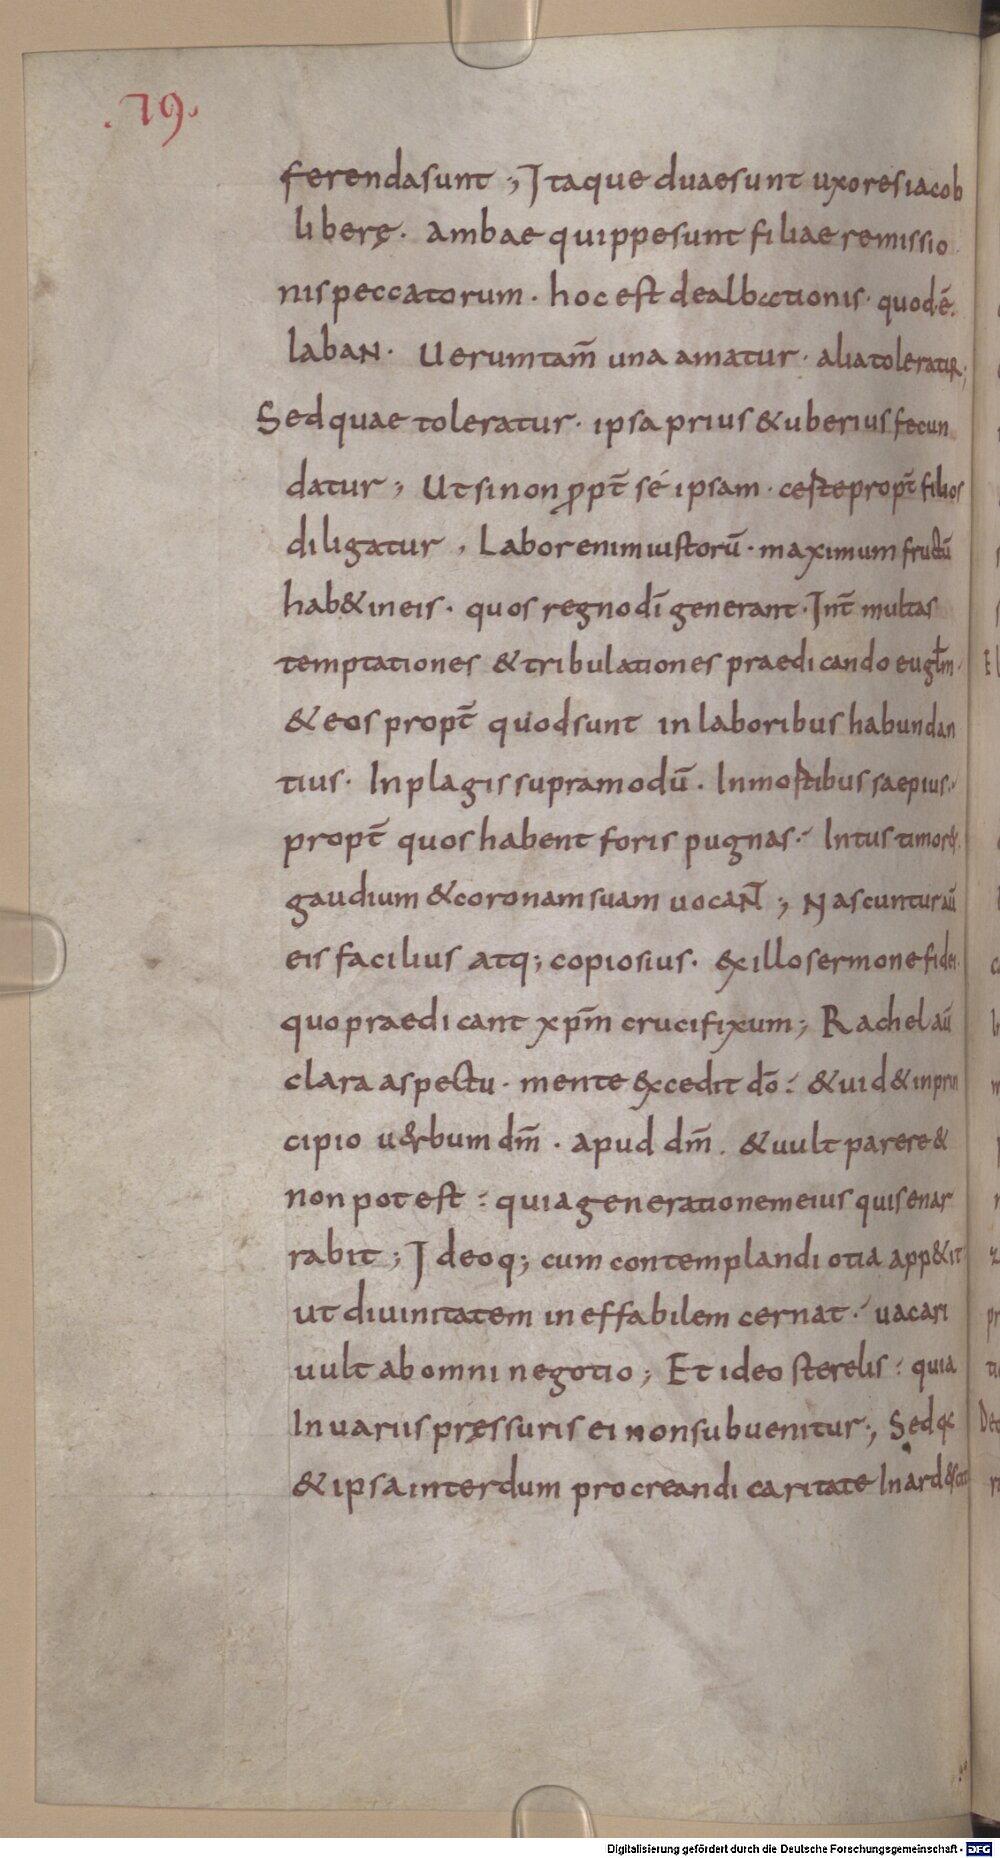 .79.
ferenda sunt ; Itaque duae sunt uxores iacob
liberę . ambae quippe sunt filiae remissio
nis peccatorum . hoc est dealbationis . quod ē .
laban . Uerumtam̄ una amatur . alia toleratur ;
Sed quae toleratur . ipsa prius & uberius fecun
datur ; Ut si non ꝓpt̄ sé ipsam . certe propt̄ filios
diligatur , Labor enim iustorū . maximum fructū
hab& in eis . quos regno dī generant . Int̄ multas
temptationes & tribulationes praedicando eugłm .
& eos propt̄ quod sunt in laboribus habundan
tius . In plagis supra modū . In mortibus saepius .
propt̄ quos habent foris pugnas . Intus timores .
gaudium & coronam suam uocant̄ ; Nascuntur aū
eis facilius atq; copiosius . ex illo sermone fidei .
quo praedicant xp̄m crucifixum ; Rachel aū
clara aspectu . mente excedit dō : & uid& in prin
cipio u&rbum dm̄ . apud dm̄ . & uult parere &
non potest : quia generationem eius quis enar
rabit ; Ideoq; cum contemplandi otia app&it
ut diuinitatem ineffabilem cernat . uacari
uult ab omni negotio ; Et ideo sterelis : quia
In uariis pręssuris ei non subuenitur ; Sed
& ipsa interdum procreandi caritate Inard&scit
Digitalisierung gefördert durch die Deutsche Forschungsgemeinschaft - DFG